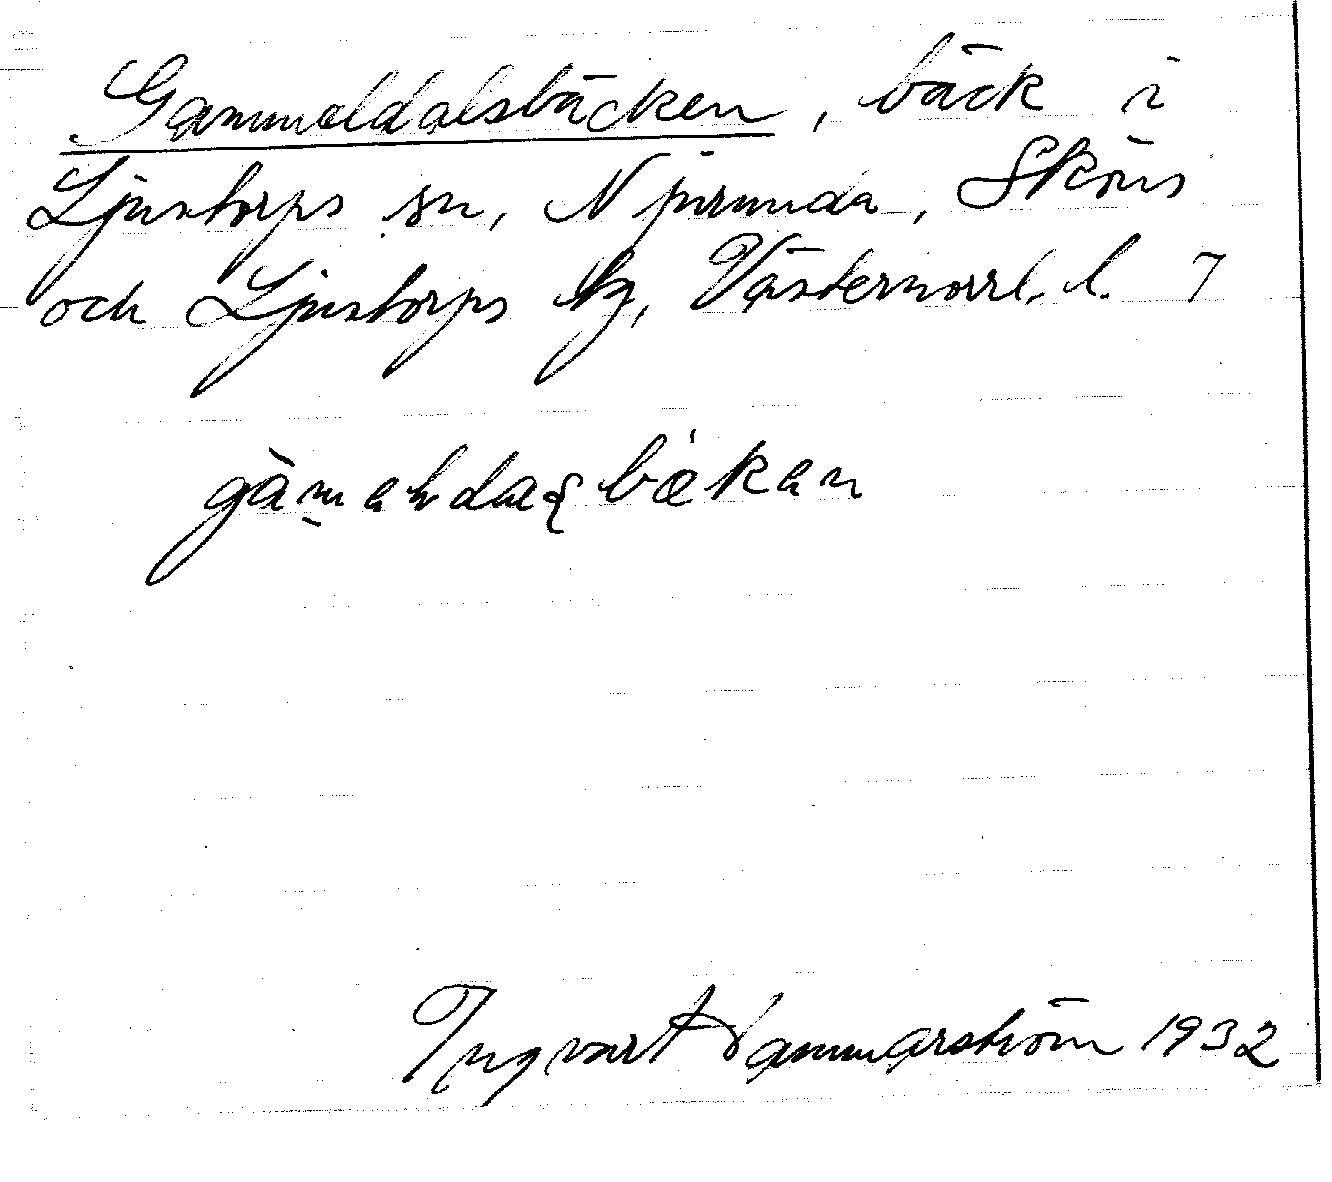 Gammeldalsbäcken, bäck i
Ljustorps sn, Njurunda, Sköns
och Ljustorps tg, Västernorrl. l. 7
Ingvart Hammarström 1932